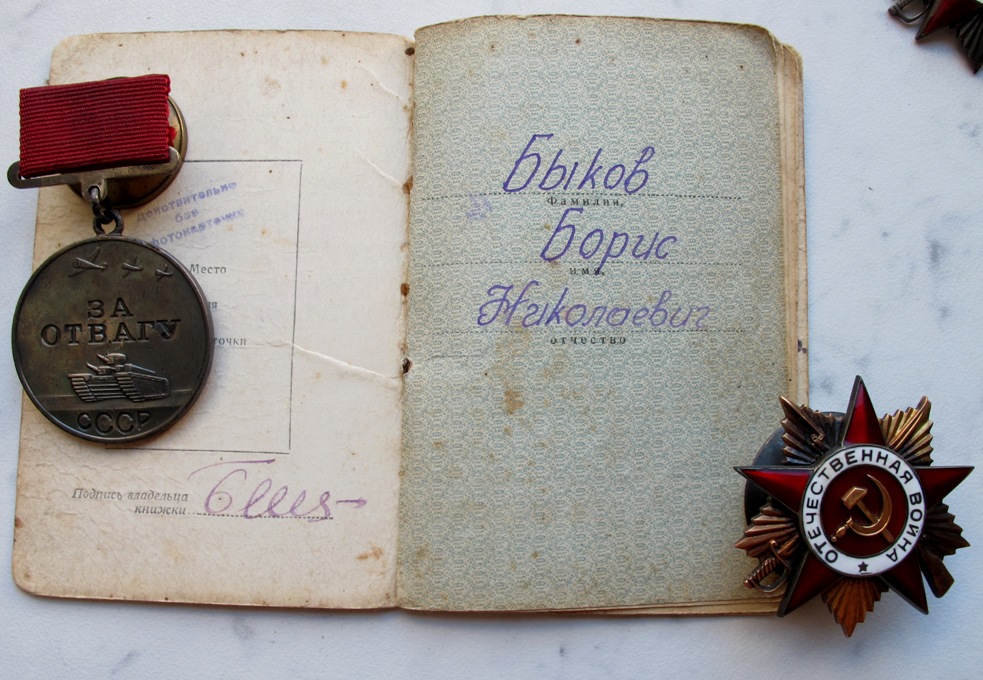 ЗА
ОТВАГУ
СССР
действительно
без
фотокарточки
Место
Подпись владельца
книжки
Быков
Фамилия,
Борис
имя,
Николаевич
отчество
ОТЕЧЕСТВЕННАЯ ВОЙНА